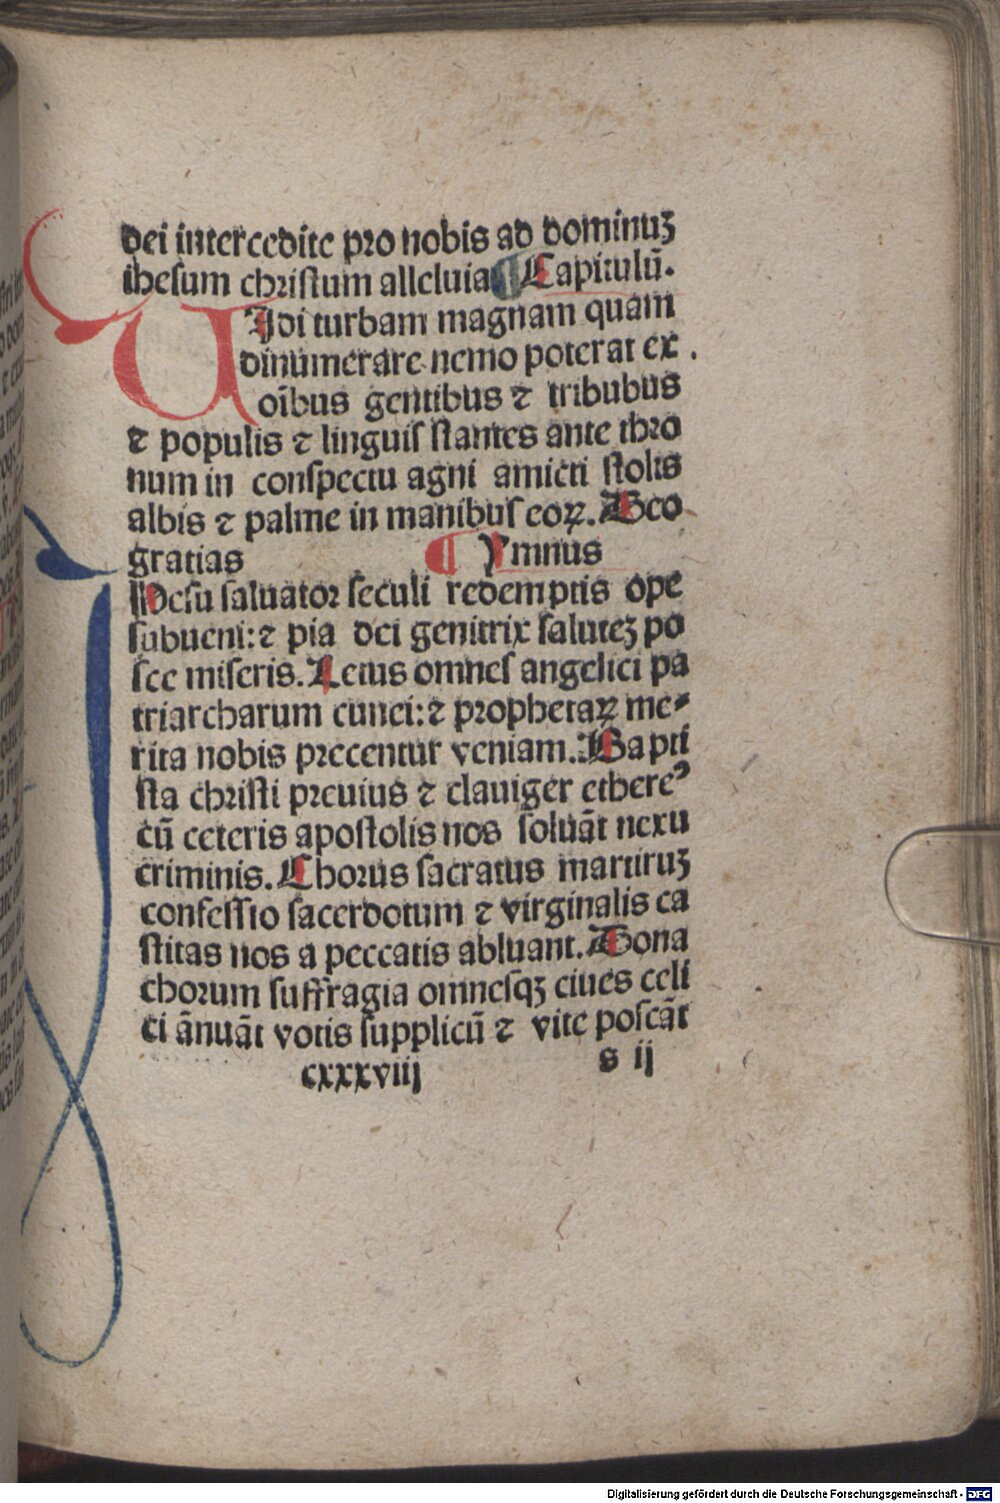 dei intercedite pro nobis ad dominuʒ
ihesum christum alleluia ¶ Capitulū.
UIdi turbam magnam quam
dinumerare nemo poterat ex .
oībus gentibus ⁊ tribubus
⁊ populis ⁊ linguiſ ſtantes ante thro
num in conſpectu agni amicti ſtolis
albis ⁊ palme in manibuſ eoꝝ. Deo
gratias ¶ Ymnus
IHeſu ſaluator ſeculi redemptis ope
ſubueni: ⁊ pia dei genitrix ſaluteʒ po
ſce miſeris. Letus omneſ angelici pa
triarcharum cunei: ⁊ prophetaꝝ me⸗
rita nobis precentur veniam. Bapti
ſta chriſti preuius ⁊ clauiger ethereꝰ
cū ceteris apoſtolis nos ſoluāt nexu
criminis. Chorus ſacratus martiruʒ
confeſſio ſacerdotum ⁊ virginalis ca
ſtitas nos a peccatis abluant. Dona
chorum ſuffragia omneſqʒ ciues celi
ci ānuāt votis ſupplicū ⁊ vite poſcāt
cxxxviij s ij
Digitalisierung gefördert durch die Deutsche Forschungsgemeinschaft - DFG